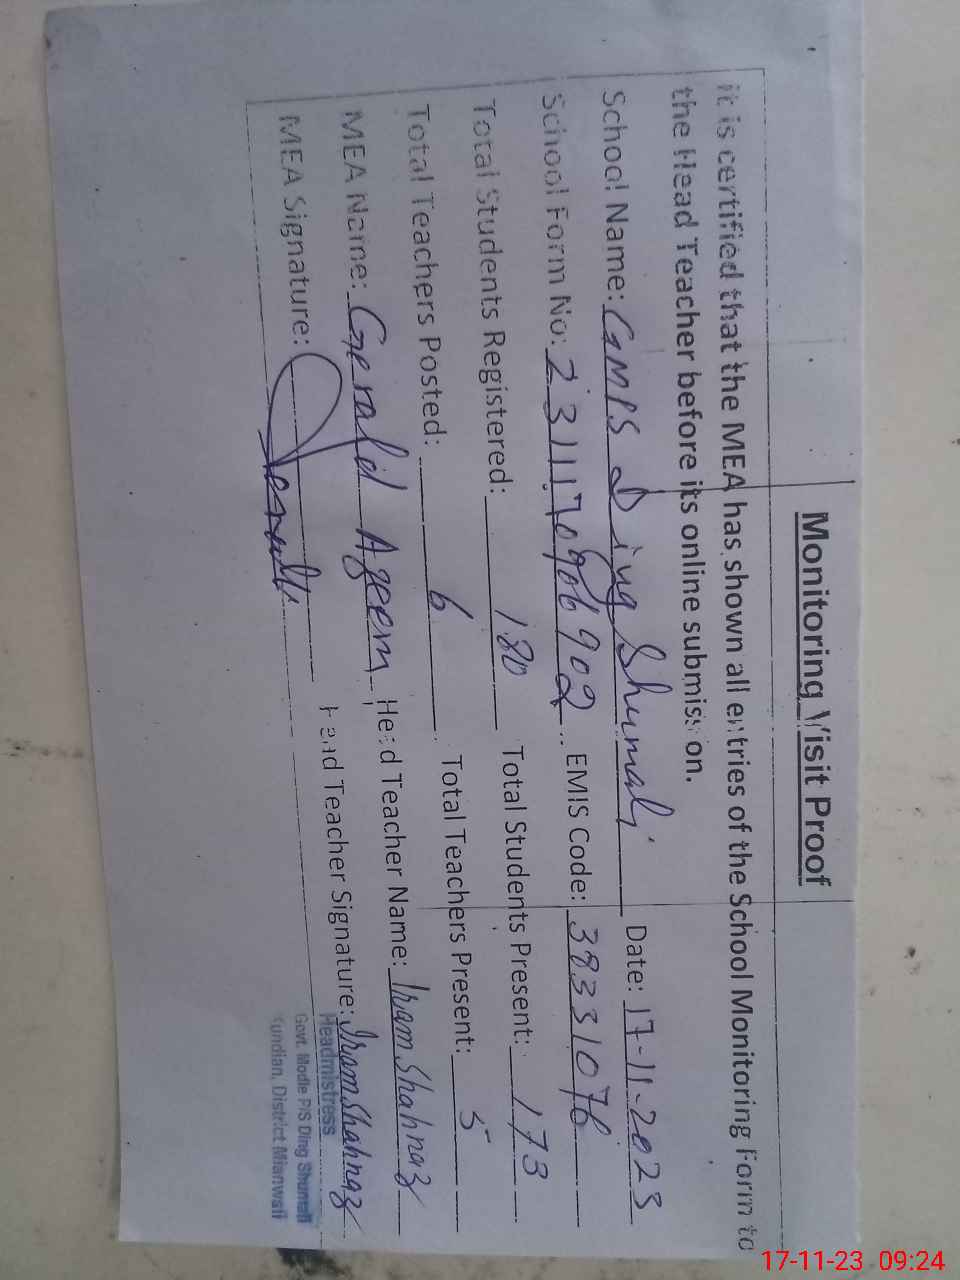 Monitoring Visit Proof
it is certified that the MEA has shown all entries of the School Monitoring Form to
the Head Teacher before its online submission.
School Name: GMPS Ding Shumali Date: 17-11-2023
School Form No: 2311170906902 EMIS Code: 38331076
Total Students Registered: 180 Total Students Present: 173
Total Teachers Posted: 6 Total Teachers Present: 5
MEA Name: Gerald Azeem Head Teacher Name: Iram Shahnaz
MEA Signature: Head Teacher Signature: Iram Shahnaz
Headmistress
Govt. Modle P/S Ding Shumali
Kundian, District Mianwali
17-11-23 09:24